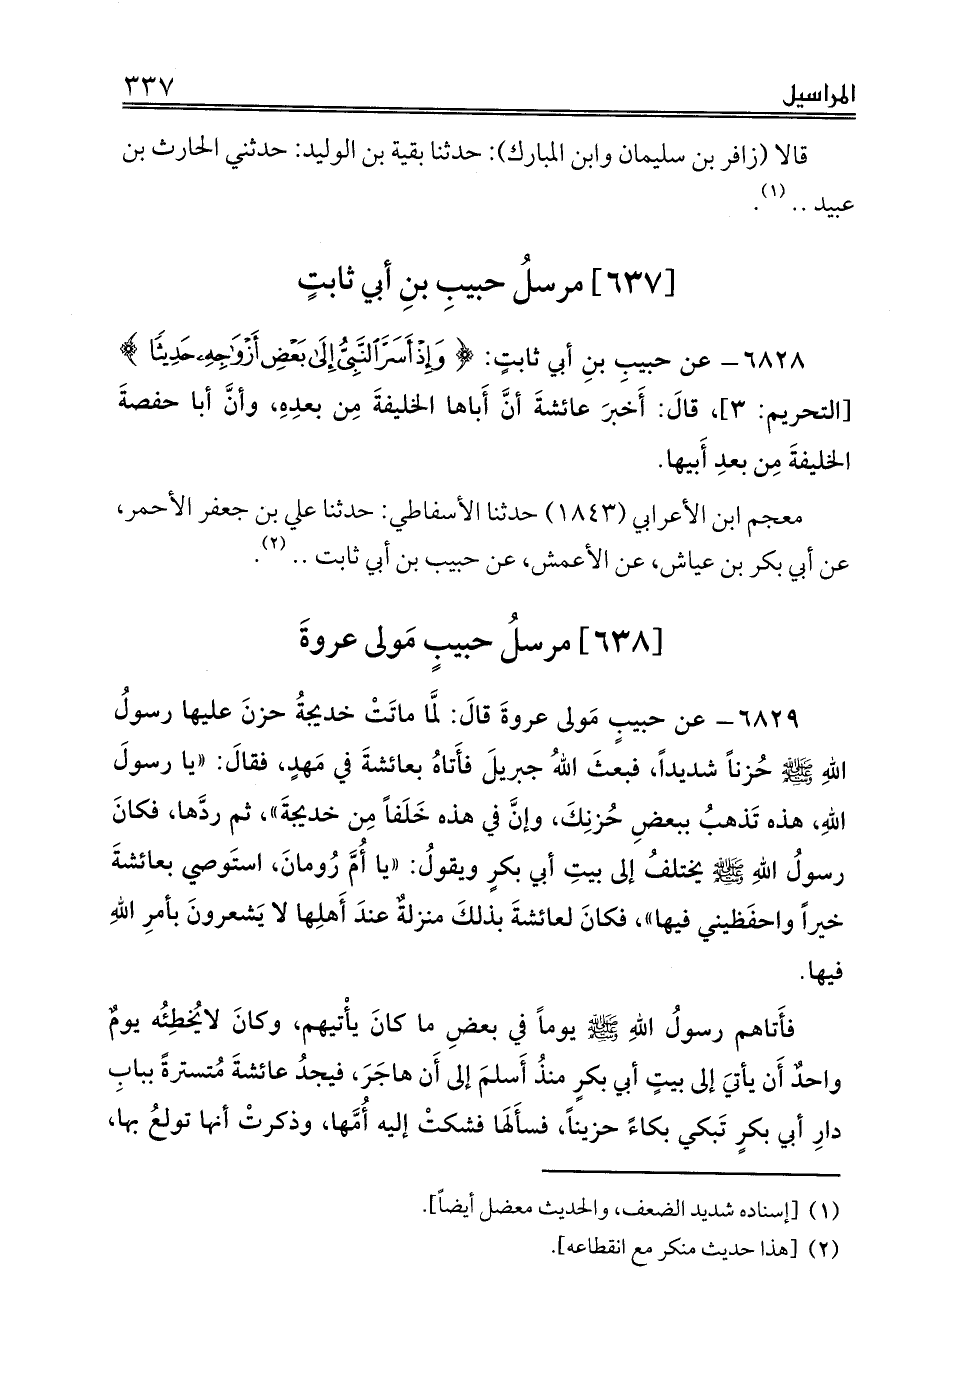 المراسيل ٣٣٧
قالا (زافر بن سليمان وابن المبارك): حدثنا بقية بن الوليد: حدثني الحارث بن
عبيد .. (١).
[٦٣٧] مرسلُ حبيبِ بنِ أبي ثابتٍ
٦٨٢٨ – عن حبيبِ بنِ أبي ثابتٍ: ﴿وَإِذْ أَسَرَّ ٱلنَّبِىُّ إِلَىٰ بَعْضِ أَزْوَٰجِهِۦ حَدِيثًا﴾
[التحريم: ٣]، قالَ: أَخبرَ عائشةَ أنَّ أَباها الخليفةَ مِن بعدِهِ، وأنَّ أبا حفصةَ
الخليفةَ مِن بعدِ أَبيها.
معجم ابن الأعرابي (١٨٤٣) حدثنا الأسفاطي: حدثنا علي بن جعفر الأحمر،
عن أبي بكر بن عياش، عن الأعمش، عن حبيب بن أبي ثابت .. (٢).
[٦٣٨] مرسلُ حبيبٍ مَولى عروةَ
٦٨٢٩ – عن حبيبٍ مَولى عروةَ قالَ: لمَّا ماتَتْ خديجةُ حزنَ عليها رسولُ
اللهِ ﷺ حُزناً شديداً، فبعثَ اللهُ جبريلَ فأَتاهُ بعائشةَ في مَهدٍ، فقالَ: «يا رسولَ
اللهِ، هذه تَذهبُ ببعضِ حُزنِكَ، وإنَّ في هذه خَلَفاً مِن خديجةَ»، ثم ردَّها، فكانَ
رسولُ اللهِ ﷺ يختلفُ إلى بيتِ أبي بكرٍ ويقولُ: «يا أُمَّ رُومانَ، استَوصي بعائشةَ
خيراً واحفَظيني فيها»، فكانَ لعائشةَ بذلكَ منزلةٌ عندَ أَهلِها لا يَشعرونَ بأمرِ اللهِ
فيها.
فأَتاهم رسولُ اللهِ ﷺ يوماً في بعضِ ما كانَ يأْتيهم، وكانَ لا يُخطِئُه يومٌ
واحدٌ أَن يأتيَ إلى بيتِ أبي بكرٍ منذُ أَسلمَ إلى أَن هاجَرَ، فيجدُ عائشةَ مُتسترةً ببابِ
دارِ أبي بكرٍ تَبكي بكاءً حزيناً، فسأَلَها فشكتْ إليه أُمَّها، وذكرتْ أنها تولعُ بها،
(١) [إسناده شديد الضعف، والحديث معضل أيضاً].
(٢) [هذا حديث منكر مع انقطاعه].